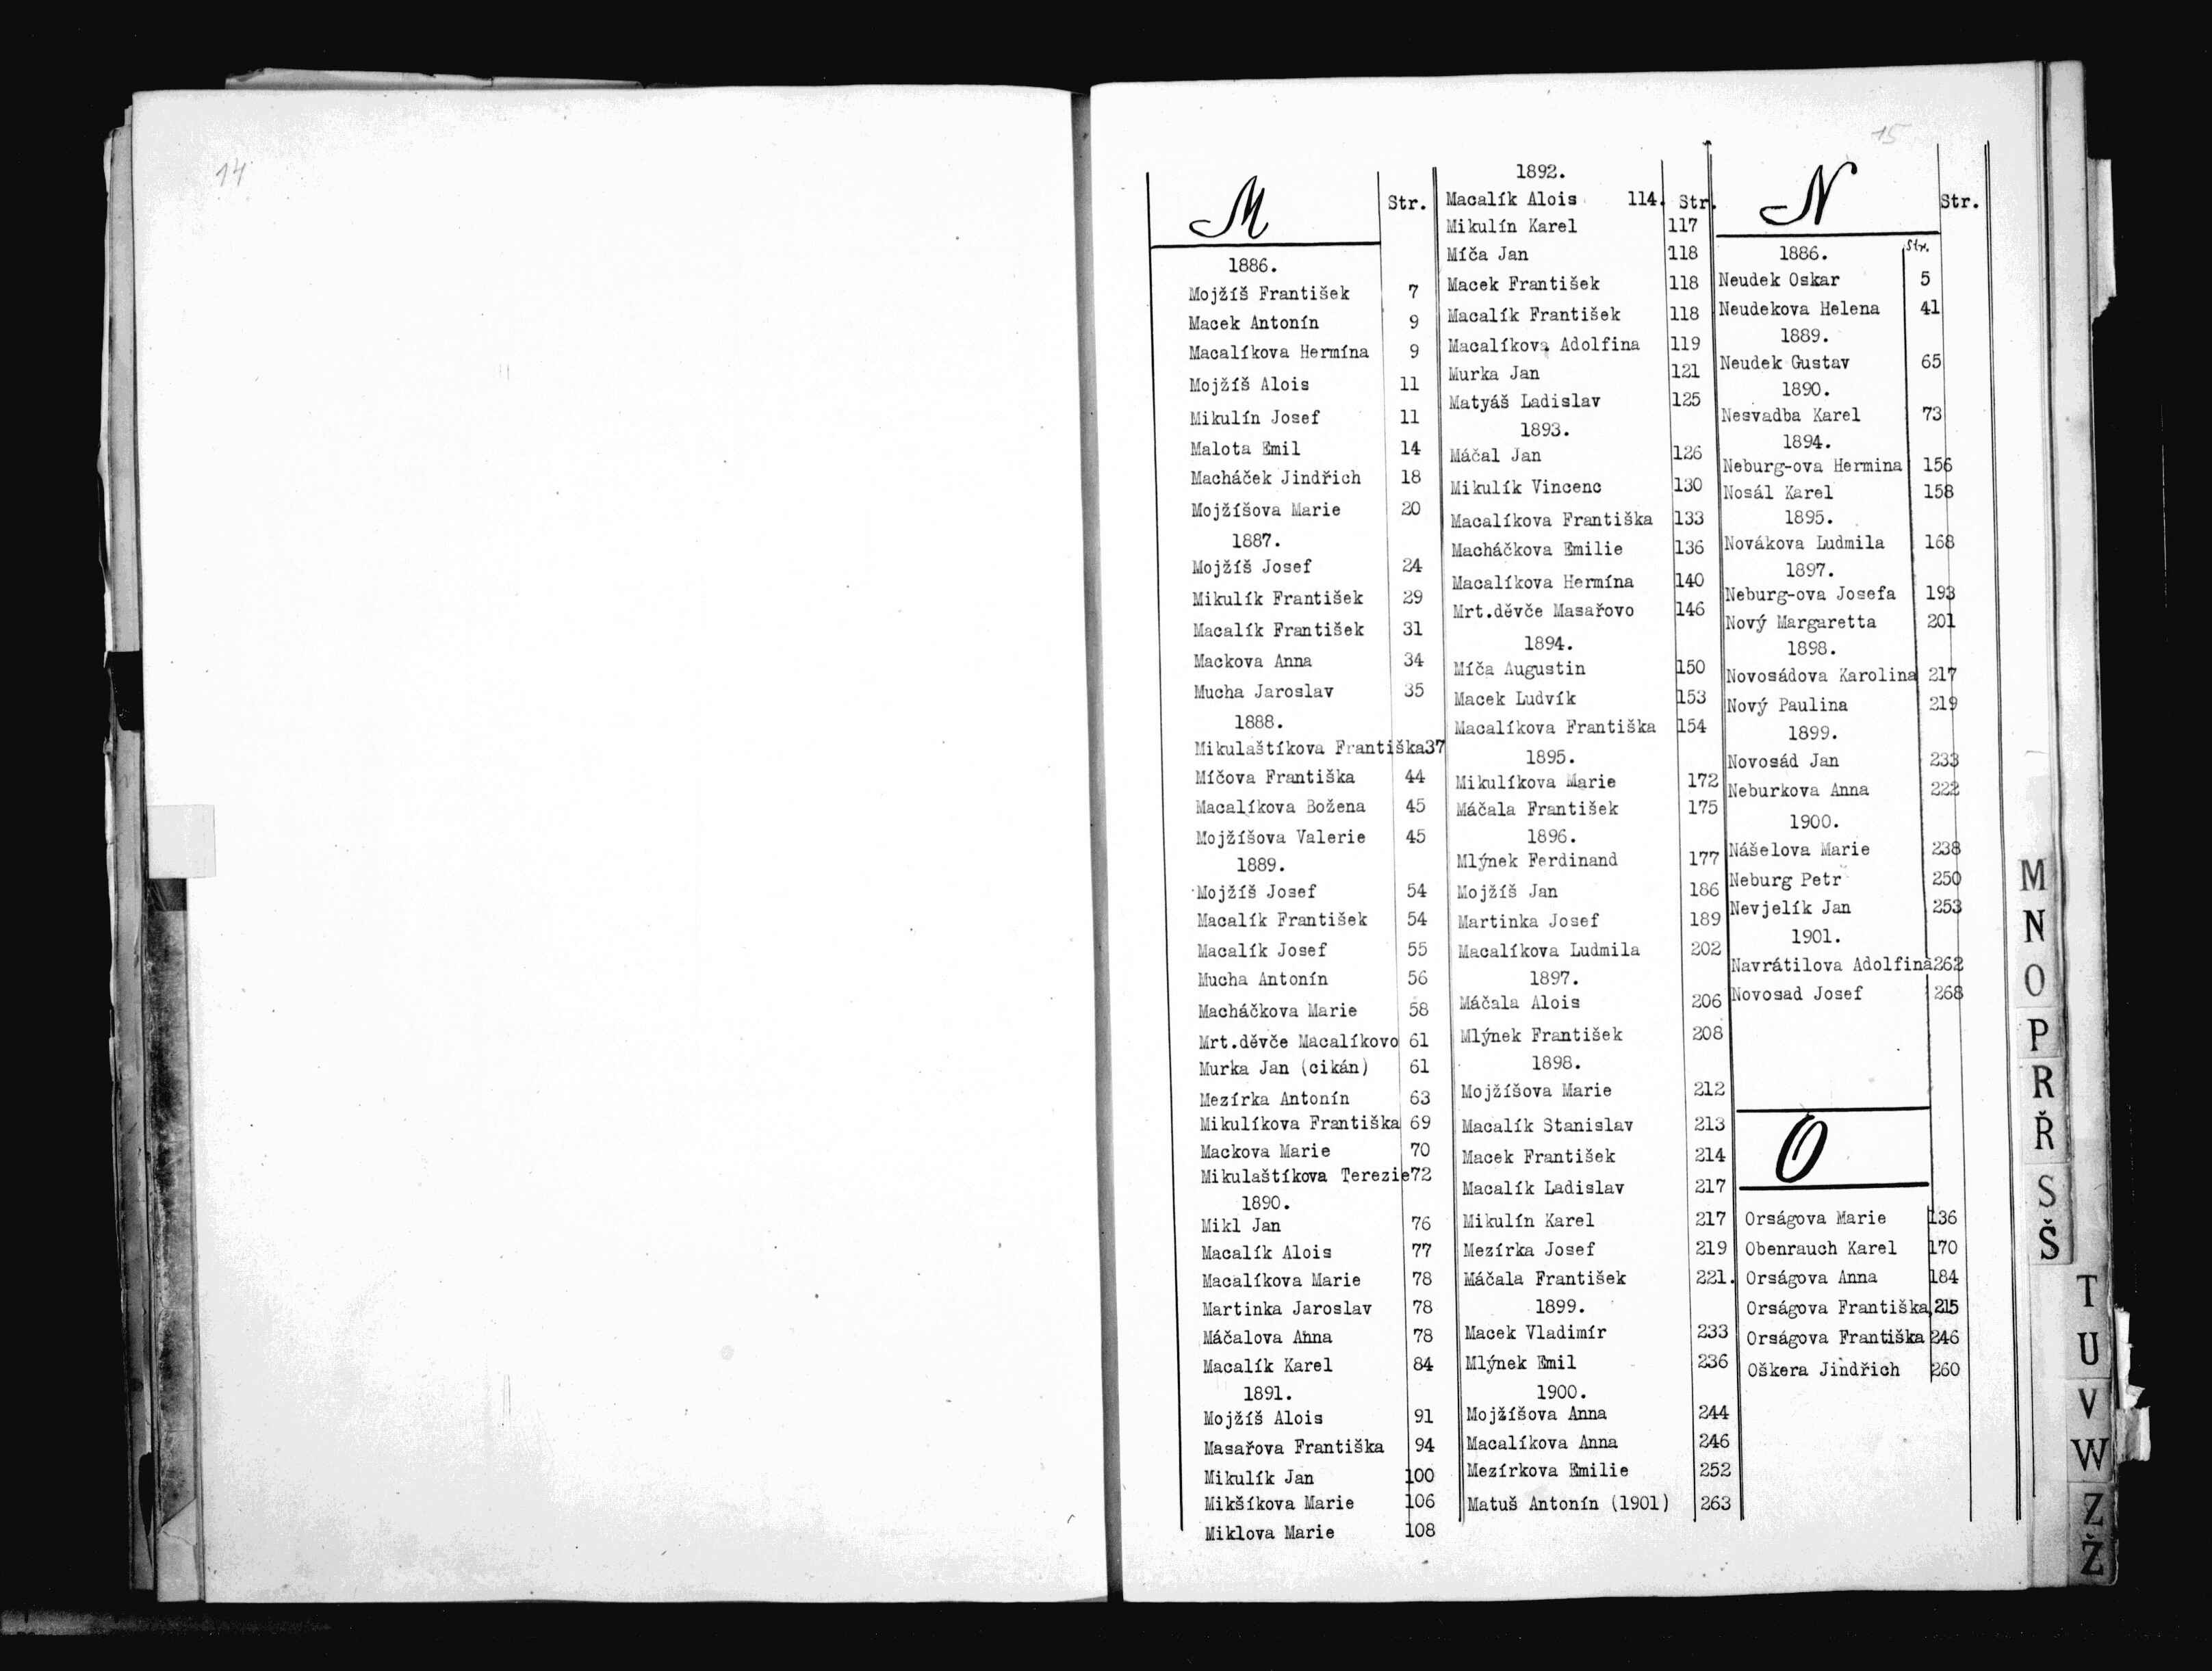 14
15
M Str.
1886.
Mojžíš František 7
Macek Antonín 9
Macalíkova Hermína 9
Mojžíš Alois 11
Mikulín Josef 11
Malota Emil 14
Macháček Jindřich 18
Mojžíšova Marie 20
1887.
Mojžíš Josef 24
Mikulík František 29
Macalík František 31
Mackova Anna 34
Mucha Jaroslav 35
1888.
Mikulaštíkova Františka37
Míčova Františka 44
Macalíkova Božena 45
Mojžíšova Valerie 45
1889.
Mojžíš Josef 54
Macalík František 54
Macalík Josef 55
Mucha Antonín 56
Macháčkova Marie 58
Mrt.děvče Macalíkovo 61
Murka Jan (cikán) 61
Mezírka Antonín 63
Mikulíkova Františka 69
Mackova Marie 70
Mikulaštíkova Terezie72
1890.
Mikl Jan 76
Macalík Alois 77
Macalíkova Marie 78
Martinka Jaroslav 78
Máčalova Anna 78
Macalík Karel 84
1891.
Mojžíš Alois 91
Masařova Františka 94
Mikulík Jan 100
Mikšíkova Marie 106
Miklova Marie 108
1892.
Macalík Alois 114. Str.
Mikulín Karel 117
Míča Jan 118
Macek František 118
Macalík František 118
Macalíkova Adolfina 119
Murka Jan 121
Matyáš Ladislav 125
1893.
Máčal Jan 126
Mikulík Vincenc 130
Macalíkova Františka 133
Macháčkova Emilie 136
Macalíkova Hermína 140
Mrt.děvče Masařovo 146
1894.
Míča Augustin 150
Macek Ludvík 153
Macalíkova Františka 154
1895.
Mikulíkova Marie 172
Máčala František 175
1896.
Mlýnek Ferdinand 177
Mojžíš Jan 186
Martinka Josef 189
Macalíkova Ludmila 202
1897.
Máčala Alois 206
Mlýnek František 208
1898.
Mojžíšova Marie 212
Macalík Stanislav 213
Macek František 214
Macalík Ladislav 217
Mikulín Karel 217
Mezírka Josef 219
Máčala František 221.
1899.
Macek Vladimír 233
Mlýnek Emil 236
1900.
Mojžíšova Anna 244
Macalíkova Anna 246
Mezírkova Emilie 252
Matuš Antonín (1901) 263
N Str.
1886. Str.
Neudek Oskar 5
Neudekova Helena 41
1889.
Neudek Gustav 65
1890.
Nesvadba Karel 73
1894.
Neburg-ova Hermina 156
Nosál Karel 158
1895.
Novákova Ludmila 168
1897.
Neburg-ova Josefa 193
Nový Margaretta 201
1898.
Novosádova Karolina 217
Nový Paulina 219
1899.
Novosád Jan 233
Neburkova Anna 222
1900.
Nášelova Marie 238
Neburg Petr 250
Nevjelík Jan 253
1901.
Navrátilova Adolfina262
Novosad Josef 268
O
Orságova Marie 136
Obenrauch Karel 170
Orságova Anna 184
Orságova Františka 215
Orságova Františka 246
Oškera Jindřich 260
M
N
O
P
R
Ř
S
Š
T
U
V
W
Z
Ž